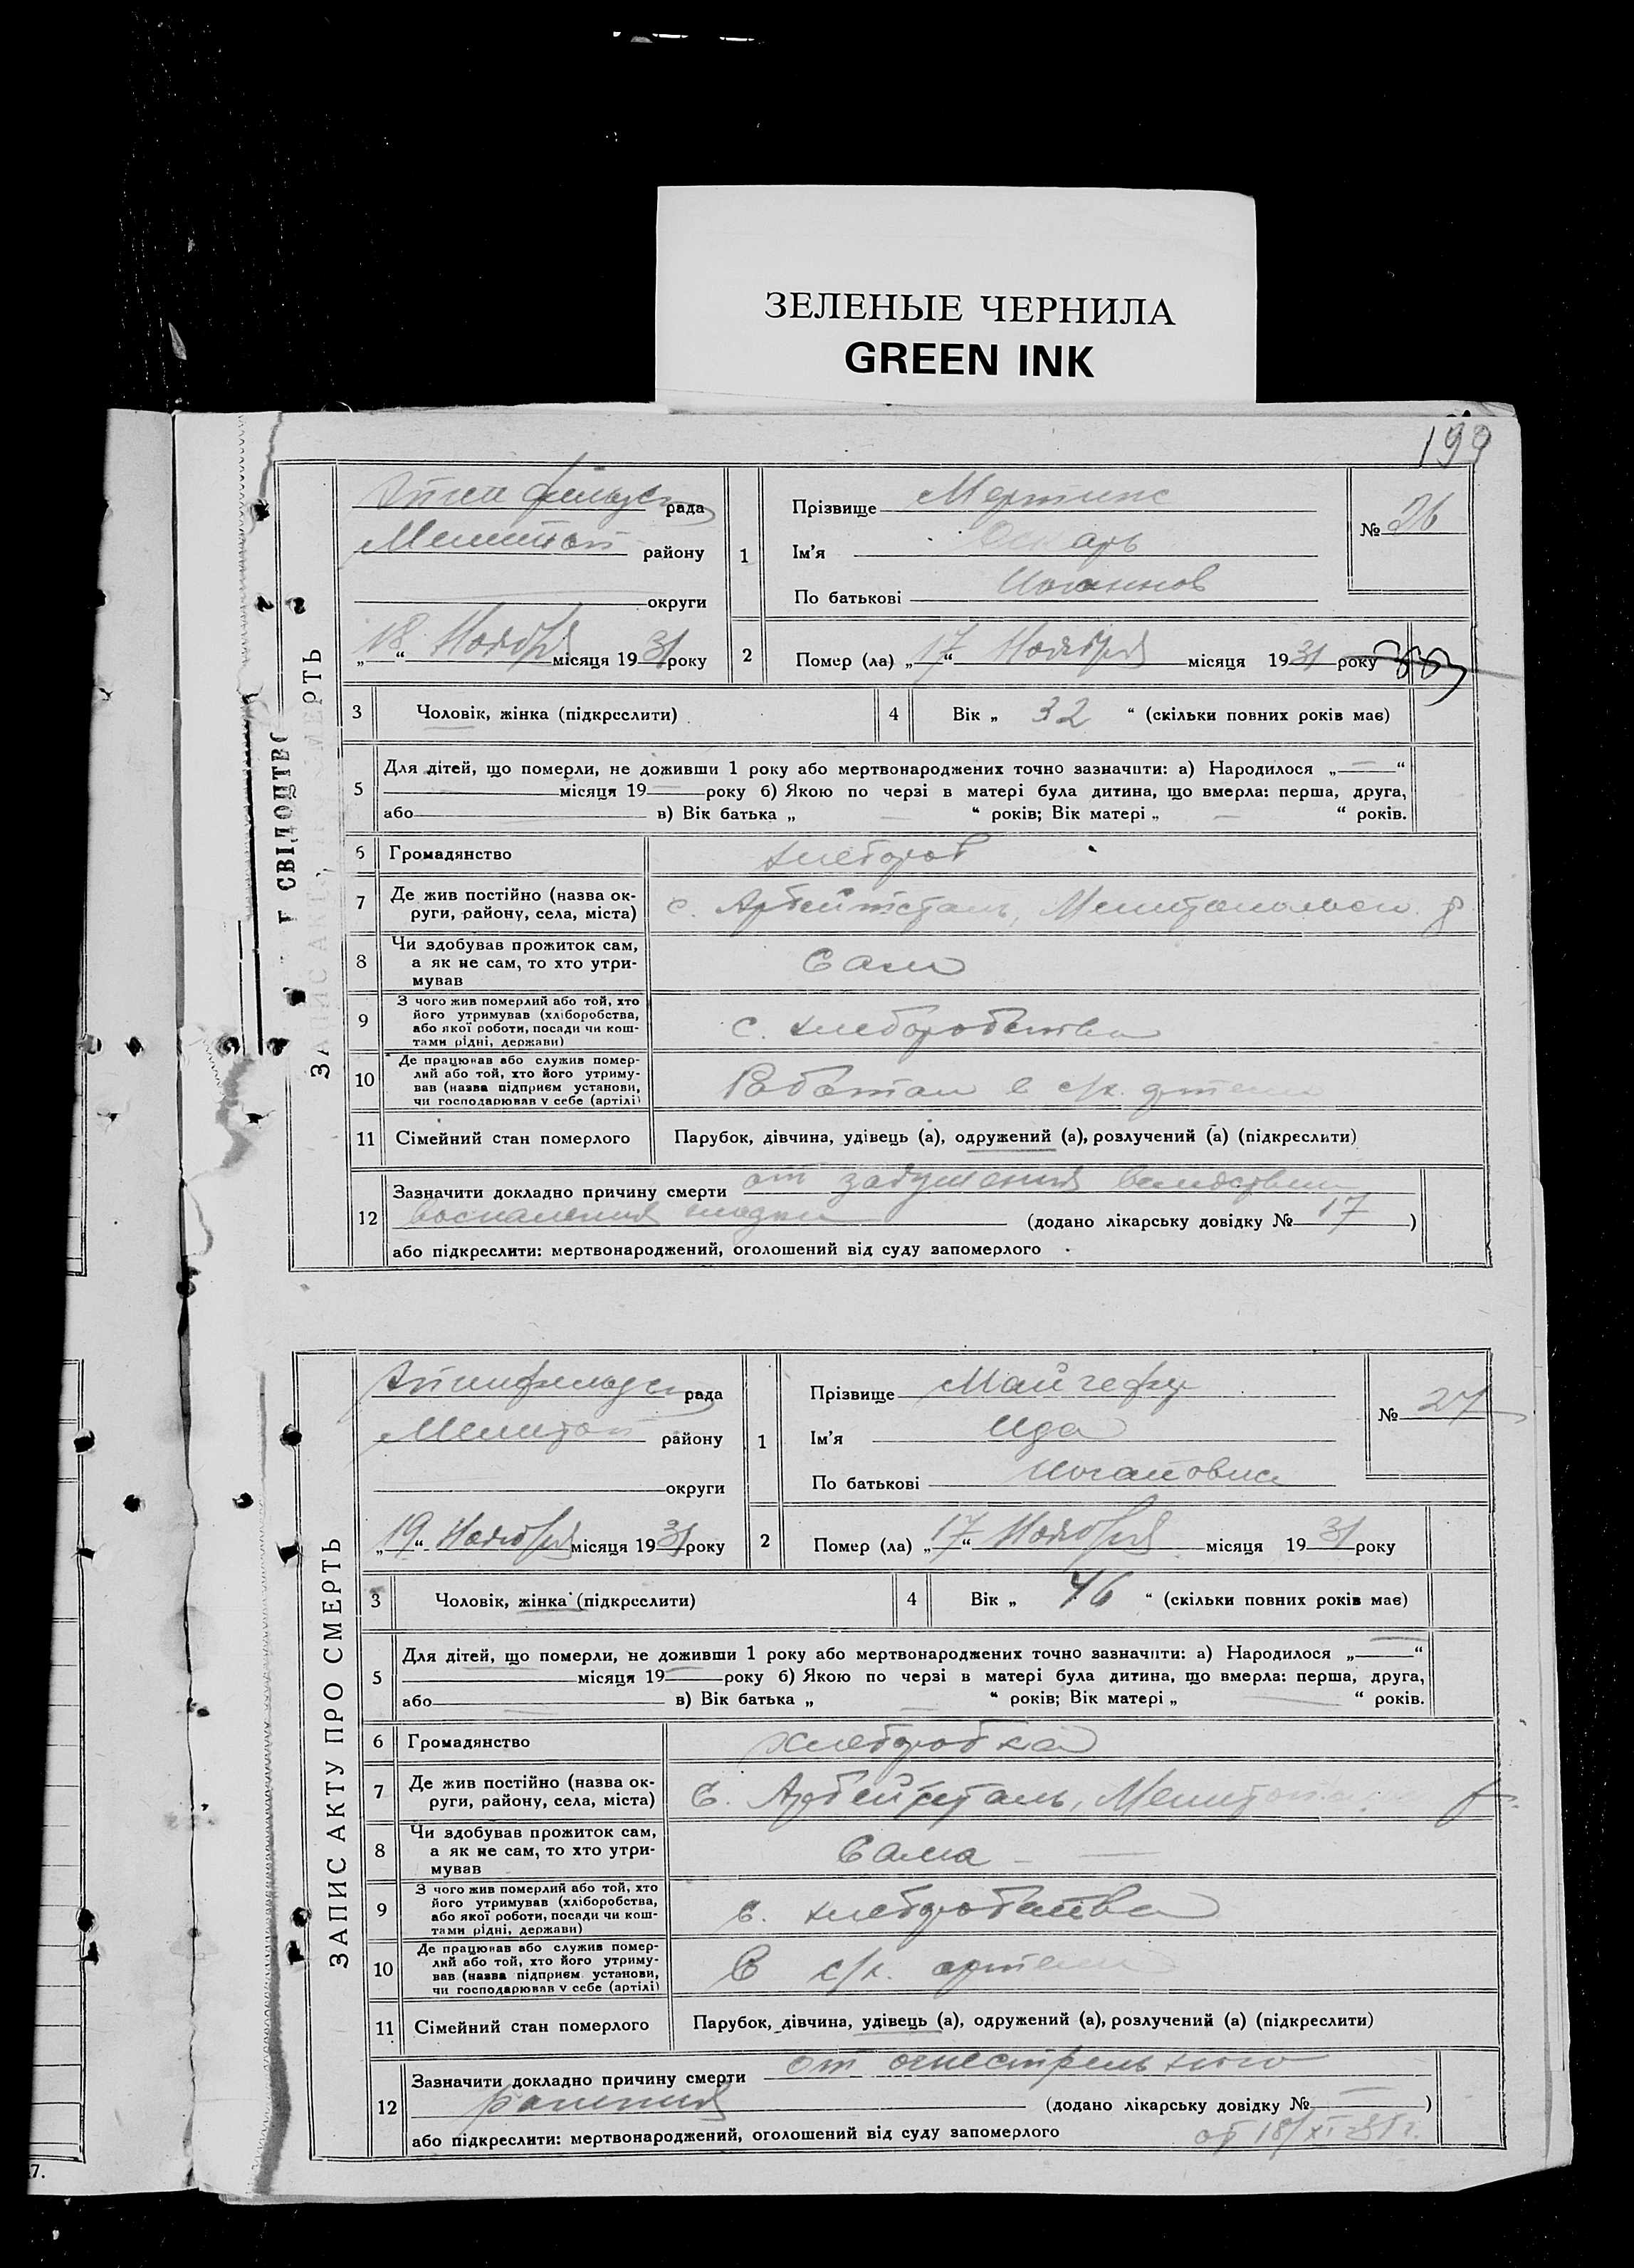 ЗЕЛЕНЫЕ ЧЕРНИЛА
GREEN INK
199
СВІДОЦТВО
ЗАПИС АКТУ ПРО СМЕРТЬ
рада
Мелитоп району
округи
„18“ Ноября місяця 1931 року
1
Прізвище Мертинс
Ім'я Оскарь
По батькові Иоганнов
№ 26
2
Помер (ла) „17“ Ноября місяця 1931 року
3 Чоловік, жінка (підкреслити)
4 Вік „ 32 “ (скільки повних років має)
5 Для дітей, що померли, не доживши 1 року або мертвонароджених точно зазначити: а) Народилося „—“
місяця 19— року б) Якою по черзі в матері була дитина, що вмерла: перша, друга,
або — в) Вік батька „ — “ років; Вік матері „ — “ років.
6 Громадянство хлебороб
7 Де жив постійно (назва ок-
руги, району, села, міста) с. Арбейтсталь, Мелитопольск. р
8 Чи здобував прожиток сам,
а як не сам, то хто утри-
мував Сам
9 З чого жив померлий або той, хто
його утримував (хліборобства,
або якої роботи, посади чи кош-
тами рідні, держави) С. хлеборобства
10 Де працював або служив помер-
лий або той, хто його утриму-
вав (назва підприєм установи,
чи господарював у себе (артілі) Работал в с/х. артели
11 Сімейний стан померлого Парубок, дівчина, удівець (а), одружений (а), розлучений (а) (підкреслити)
12 Зазначити докладно причину смерти от задушения вследствии
воспаления (додано лікарську довідку № 17)
або підкреслити: мертвонароджений, оголошений від суду запомерлого
ЗАПИС АКТУ ПРО СМЕРТЬ
рада
Мелитоп району
округи
„19“ Ноября місяця 1931 року
1
Прізвище
Ім'я Ида
По батькові
№ 27
2
Помер (ла) „17“ Ноября місяця 1931 року
3 Чоловік, жінка (підкреслити)
4 Вік „ 46 “ (скільки повних років має)
5 Для дітей, що померли, не доживши 1 року або мертвонароджених точно зазначити: а) Народилося „—“
місяця 19— року б) Якою по черзі в матері була дитина, що вмерла: перша, друга,
або — в) Вік батька „ — “ років; Вік матері „ — “ років.
6 Громадянство хлеборобка
7 Де жив постійно (назва ок-
руги, району, села, міста) С. Арбейтсталь, Мелитопол р.
8 Чи здобував прожиток сам,
а як не сам, то хто утри-
мував Сама —
9 З чого жив померлий або той, хто
його утримував (хліборобства,
або якої роботи, посади чи кош-
тами рідні, держави) С. хлеборобства
10 Де працював або служив помер-
лий або той, хто його утриму-
вав (назва підприєм. установи,
чи господарював у себе (артілі) В с/х. артели
11 Сімейний стан померлого Парубок, дівчина, удівець (а), одружений (а), розлучений (а) (підкреслити)
12 Зазначити докладно причину смерти от огнестрельного
ранения (додано лікарську довідку № —)
або підкреслити: мертвонароджений, оголошений від суду запомерлого от 18/XI-31 г.
7.